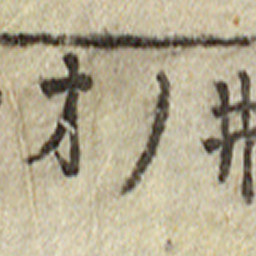 オノ井